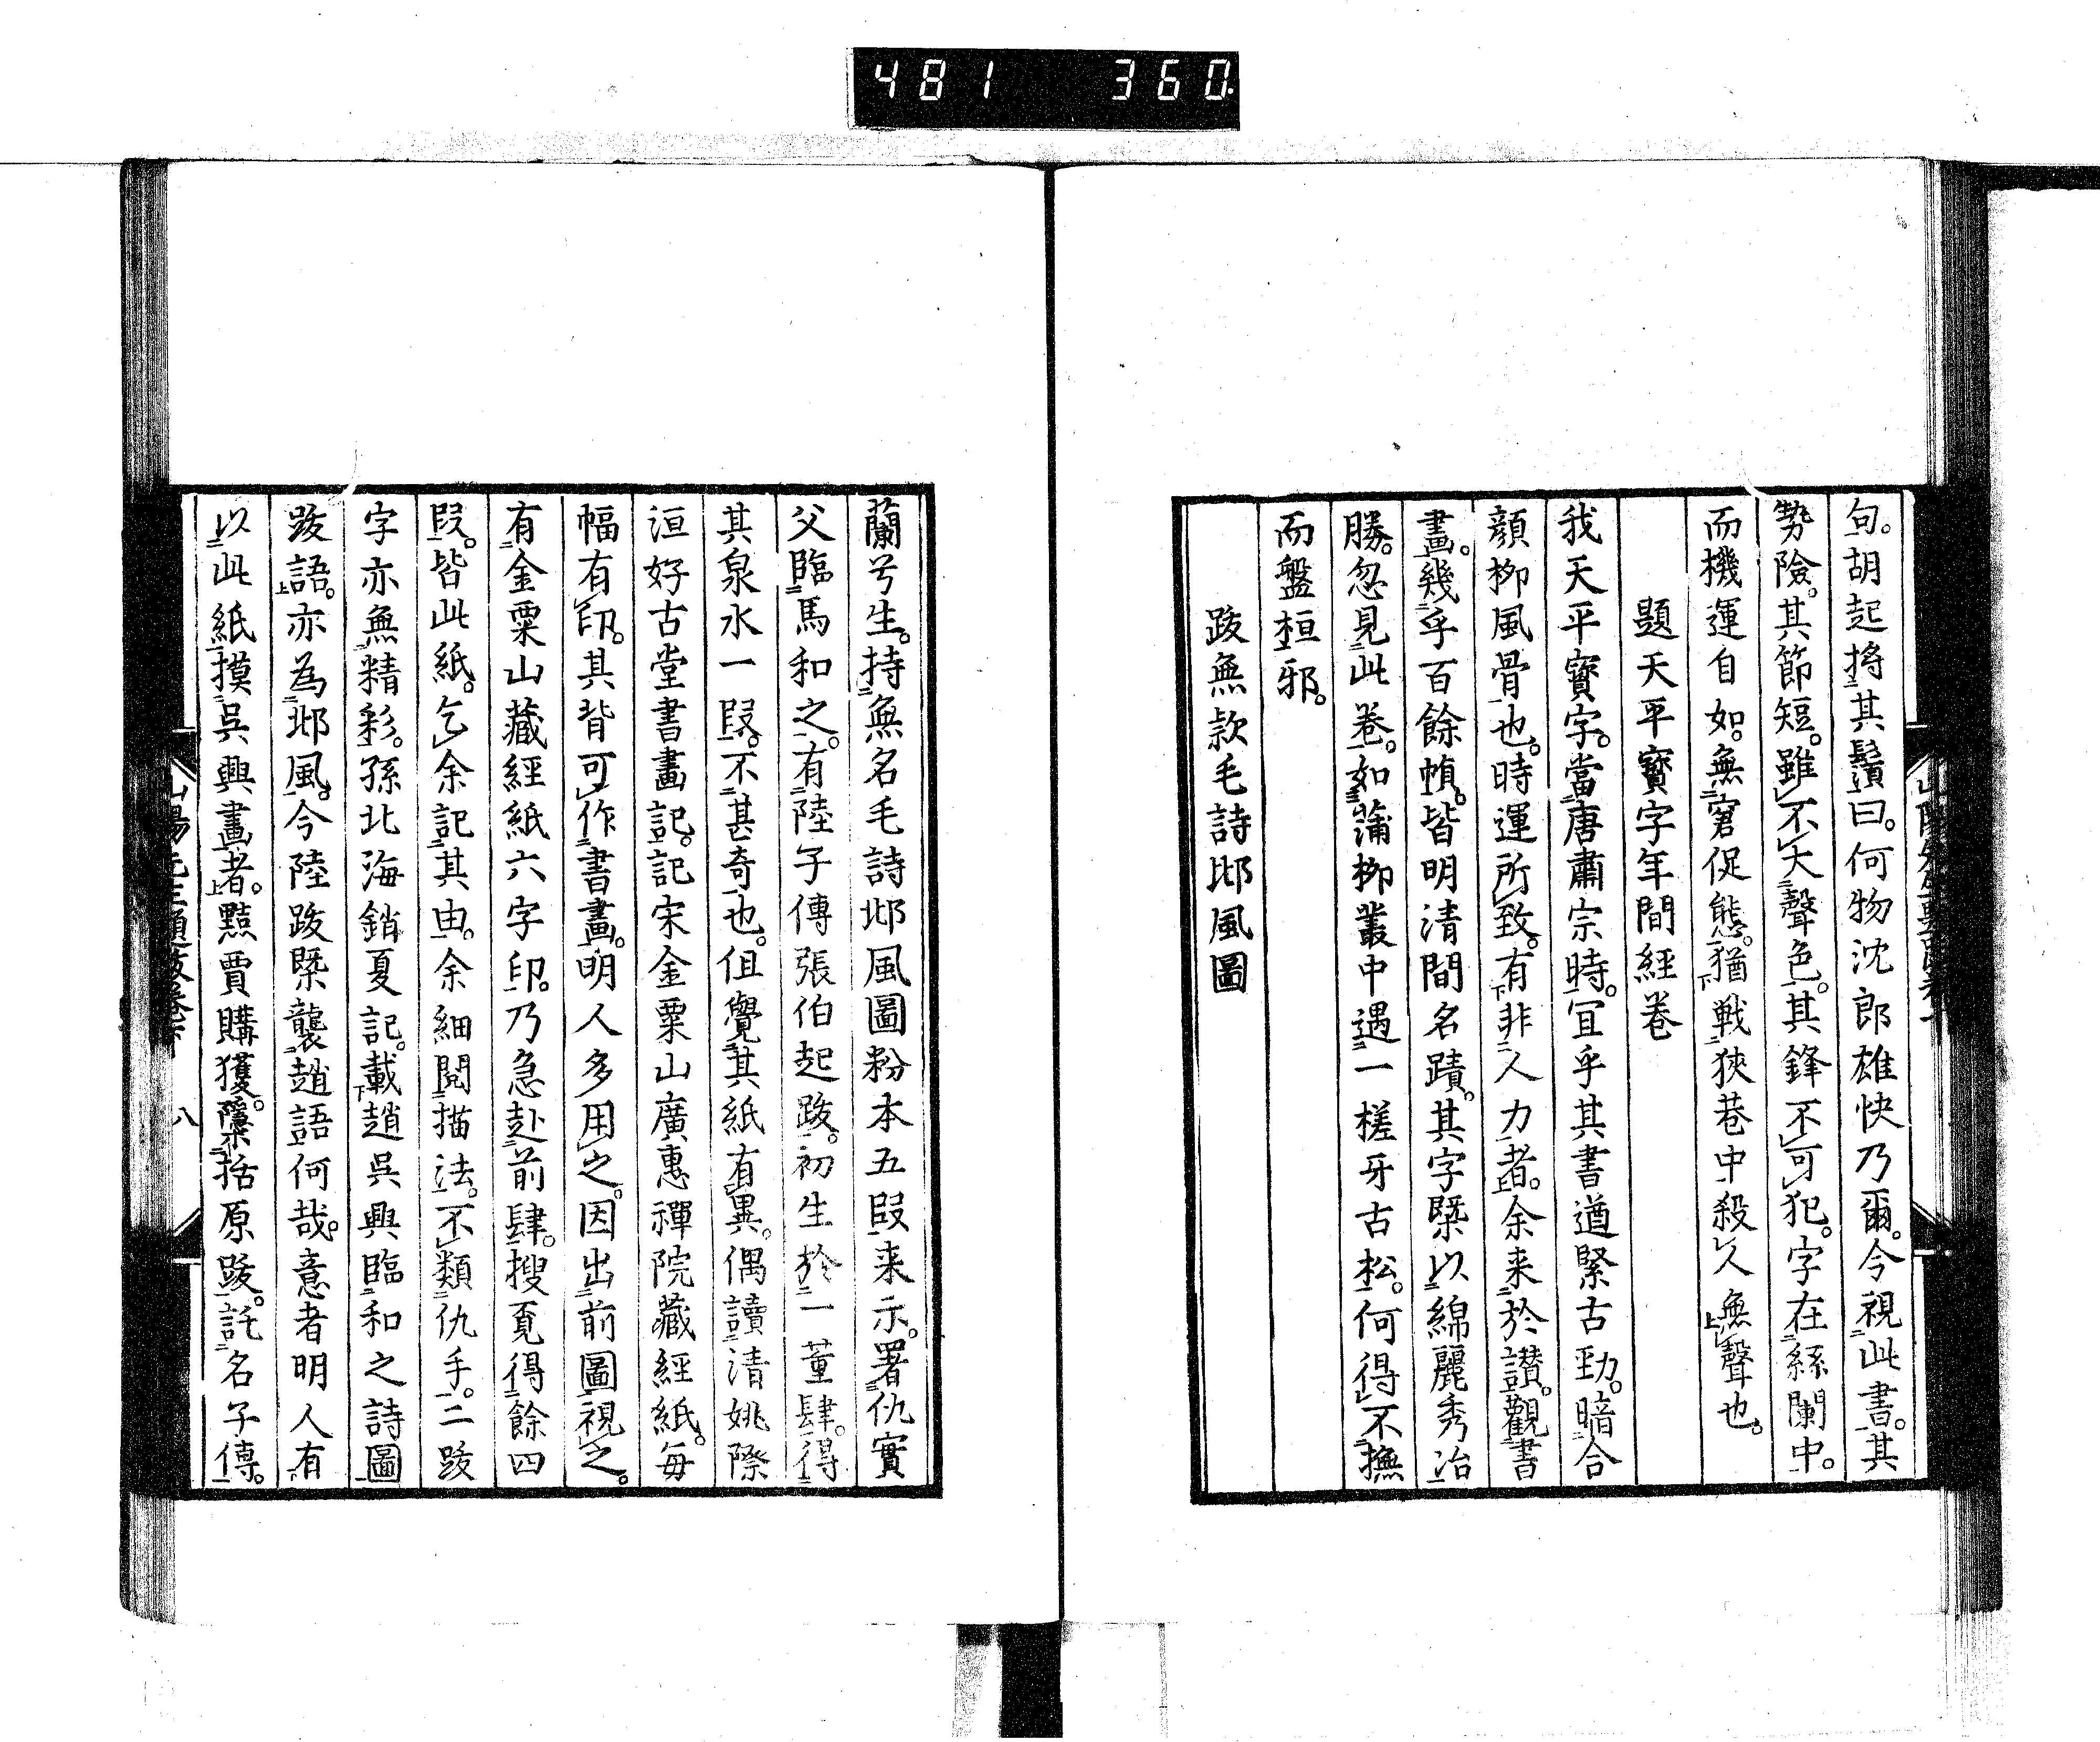 481 360
句。胡起捋其鬚曰。何物沈郎雄快乃爾。今視此書。其
勢險。其節短。雖不大聲色。其鋒不可犯。字在絲闌中。
而機運自如。無窘促態。猶戰狹巷中殺人無聲也。
題天平寶字年間經卷
我天平寶字。當唐肅宗時。宜乎其書遒緊古勁。暗合
顏柳風骨也。時運所致。有非人力者。余来於讃。觀書
畫。幾乎百餘幀。皆明清間名蹟。其字槩以綿麗秀冶
勝。忽見此卷。如蒲柳叢中遇一槎牙古松。何得不撫
而盤桓邪。
跋無款毛詩邶風圖
蘭兮生。持無名毛詩邶風圖粉本五段来示。署仇實
父臨馬和之。有陸子傳張伯起跋。初生於一董肆。得
其泉水一段。不甚奇也。但覺其紙有異。偶讀清姚際
洹好古堂書畫記。記宋金粟山廣惠禪院藏經紙。每
幅有印。其背可作書畫。明人多用之。因出前圖視之。
有金粟山藏經紙六字印。乃急赴前肆。搜覓得餘四
段。皆此紙。乞余記其由。余細閱描法。不類仇手。二跋
字亦無精彩。孫北海銷夏記。載趙吳興臨和之詩圖
跋語。亦為邶風。今陸跋槩襲趙語何哉。意者明人有
以此紙摸吳興畫者。黠賈購獲。隱括原跋。託名子傳。
八